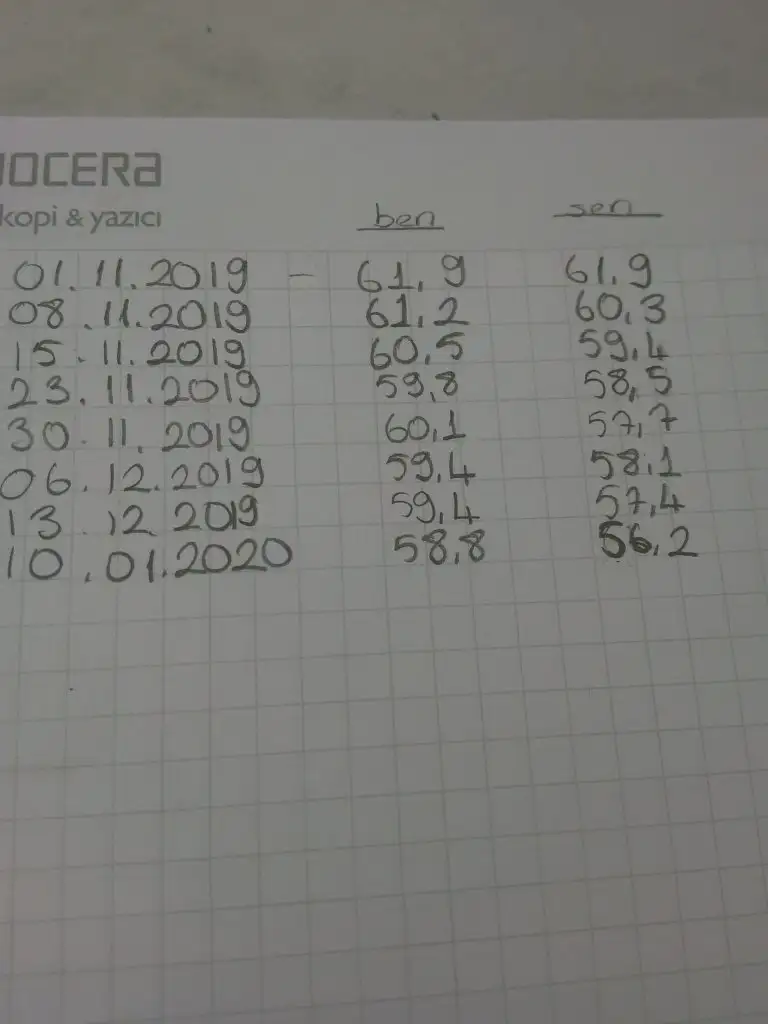 OCERA
kopi & yazıcı
ben sen
01.11.2019 - 61,9 61,9
08.11.2019 61,2 60,3
15.11.2019 60,5 59,4
23.11.2019 59,8 58,5
30.11.2019 60,1 57,7
06.12.2019 59,4 58,1
13.12 2019 59,4 57,4
10.01.2020 58,8 56,2